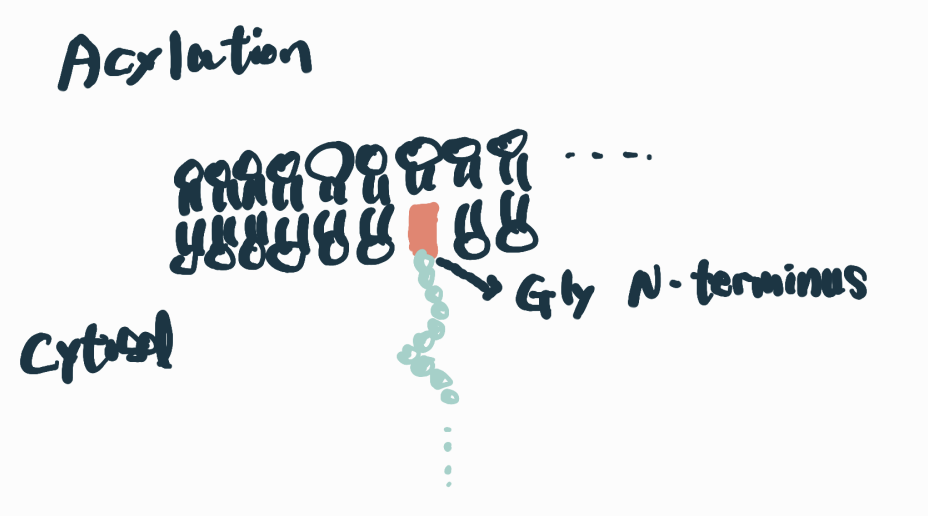 Acylation
Gly N-terminus
Cytosol